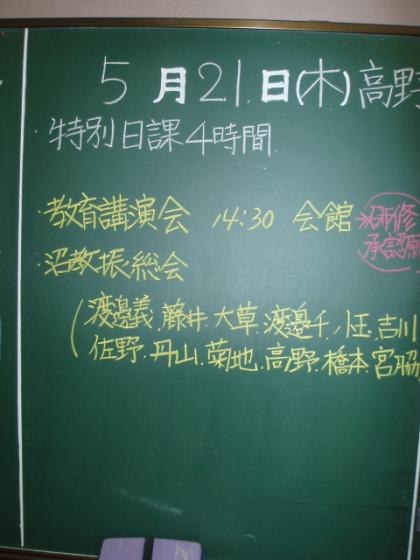 5月21日(木)高野
・特別日課4時間
・教育講演会 14:30 会館
研修
承認願
・沼教振総会
(渡邊義.藤井.大草.渡邊千.
吉川
佐野.丹山.菊地.高野.橋本.宮脇